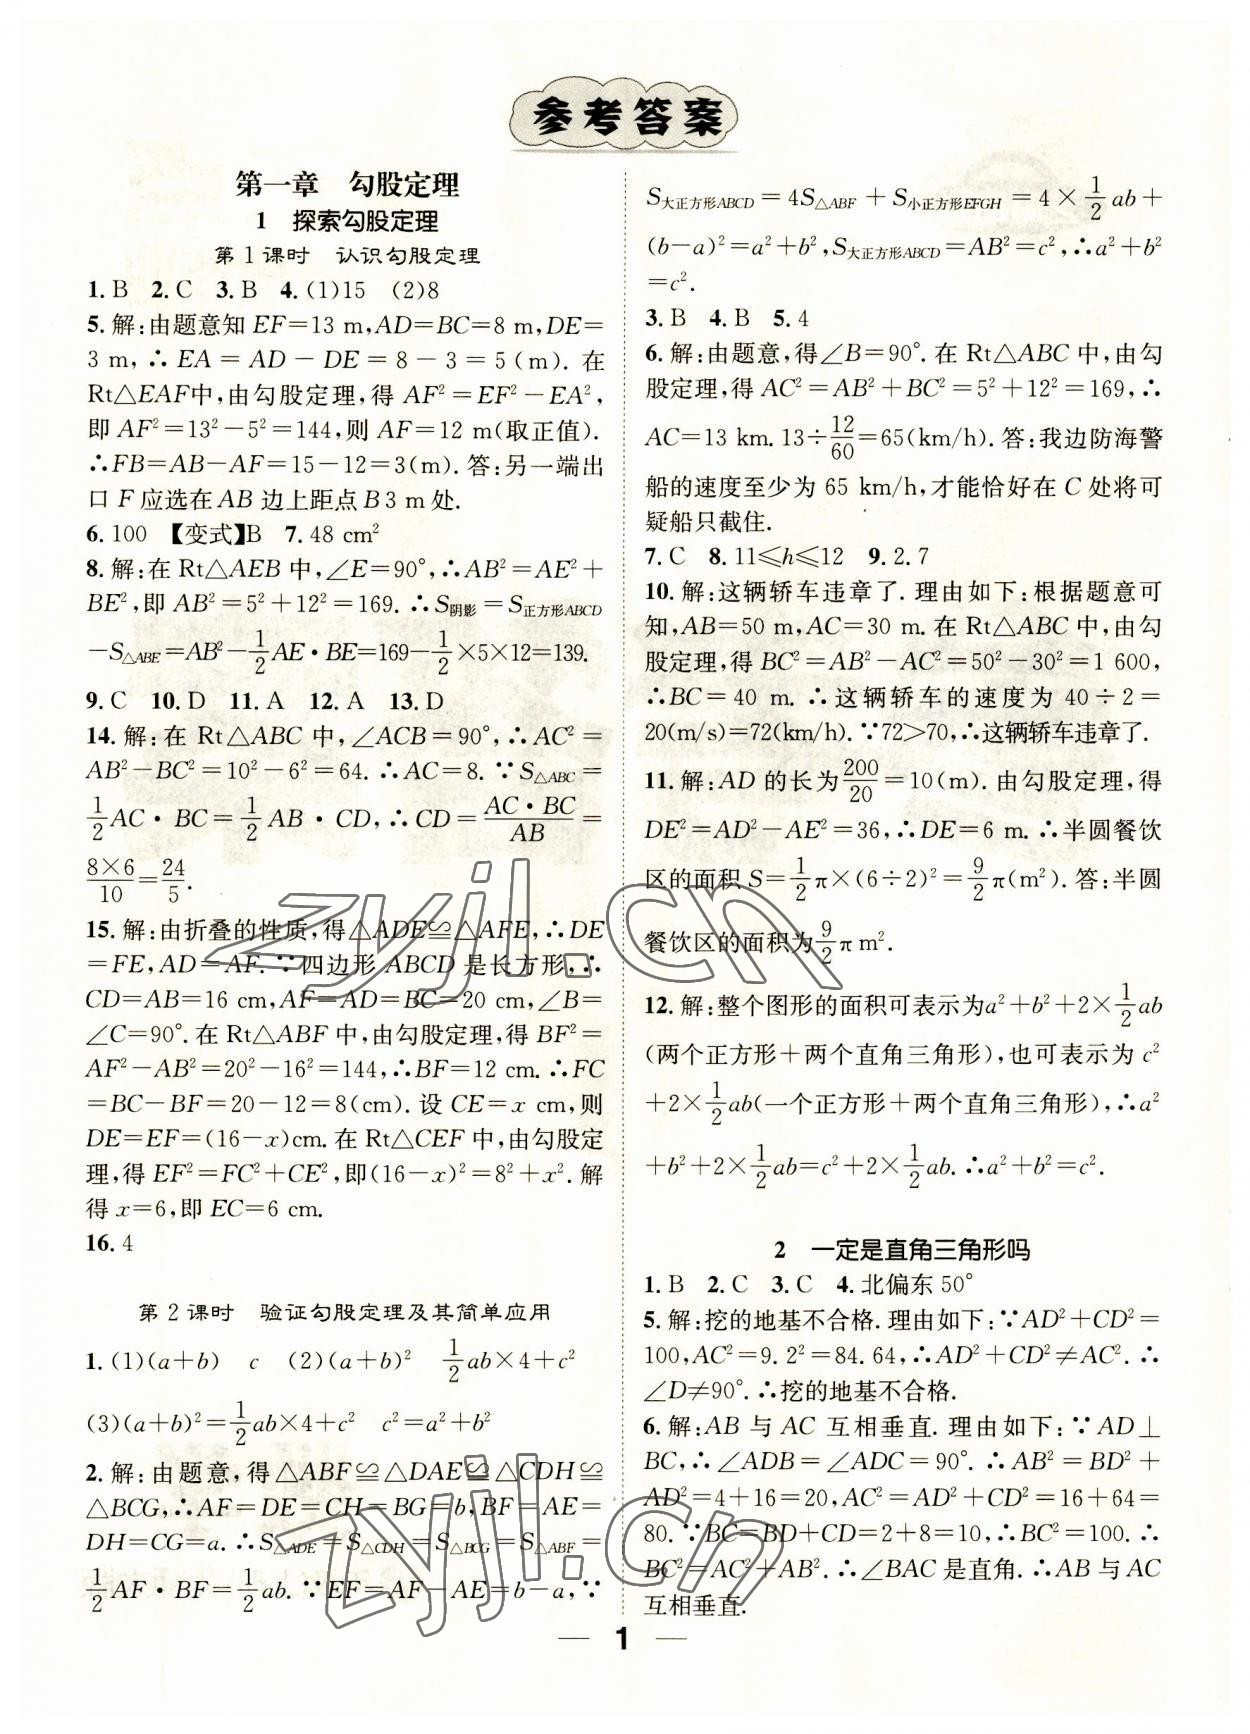 参考答案
第一章 勾股定理
1 探索勾股定理
第1课时 认识勾股定理
1.B 2.C 3.B 4.(1)15 (2)8
5.解:由题意知EF=13 m,AD=BC=8 m,DE=
3 m,∴EA=AD-DE=8-3=5(m).在
Rt△EAF中,由勾股定理,得AF²=EF²-EA²,
即AF²=13²-5²=144,则AF=12 m(取正值).
∴FB=AB-AF=15-12=3(m).答:另一端出
口F应选在AB边上距点B 3 m处.
6.100 【变式】B 7.48 cm²
8.解:在Rt△AEB中,∠E=90°,∴AB²=AE²+
BE²,即AB²=5²+12²=169.∴S阴影=S正方形ABCD
-S△ABE=AB²-1/2AE·BE=169-1/2×5×12=139.
9.C 10.D 11.A 12.A 13.D
14.解:在Rt△ABC中,∠ACB=90°,∴AC²=
AB²-BC²=10²-6²=64.∴AC=8.∵S△ABC=
1/2AC·BC=1/2AB·CD,∴CD=AC·BC/AB=
8×6/10=24/5.
15.解:由折叠的性质,得△ADE≌△AFE,∴DE
=FE,AD=AF.∵四边形ABCD是长方形,∴
CD=AB=16 cm,AF=AD=BC=20 cm,∠B=
∠C=90°.在Rt△ABF中,由勾股定理,得BF²=
AF²-AB²=20²-16²=144,∴BF=12 cm.∴FC
=BC-BF=20-12=8(cm).设CE=x cm,则
DE=EF=(16-x)cm.在Rt△CEF中,由勾股定
理,得EF²=FC²+CE²,即(16-x)²=8²+x².解
得x=6,即EC=6 cm.
16.4
第2课时 验证勾股定理及其简单应用
1.(1)(a+b) c (2)(a+b)² 1/2ab×4+c²
(3)(a+b)²=1/2ab×4+c² c²=a²+b²
2.解:由题意,得△ABF≌△DAE≌△CDH≌
△BCG,∴AF=DE=CH=BG=b,BF=AE=
DH=CG=a.∴S△ADE=S△CDH=S△BCG=S△ABF=
1/2AF·BF=1/2ab.∵EF=AF-AE=b-a,∵
S大正方形ABCD=4S△ABF+S小正方形EFGH=4×1/2ab+
(b-a)²=a²+b²,S大正方形ABCD=AB²=c²,∴a²+b²
=c².
3.B 4.B 5.4
6.解:由题意,得∠B=90°.在Rt△ABC中,由勾
股定理,得AC²=AB²+BC²=5²+12²=169,∴
AC=13 km.13÷12/60=65(km/h).答:我边防海警
船的速度至少为65 km/h,才能恰好在C处将可
疑船只截住.
7.C 8.11≤h≤12 9.2.7
10.解:这辆轿车违章了.理由如下:根据题意可
知,AB=50 m,AC=30 m.在Rt△ABC中,由勾
股定理,得BC²=AB²-AC²=50²-30²=1 600,
∴BC=40 m.∴这辆轿车的速度为40÷2=
20(m/s)=72(km/h).∵72>70,∴这辆轿车违章了.
11.解:AD的长为200/20=10(m).由勾股定理,得
DE²=AD²-AE²=36,∴DE=6 m.∴半圆餐饮
区的面积S=1/2π×(6÷2)²=9/2π(m²).答:半圆
餐饮区的面积为9/2π m².
12.解:整个图形的面积可表示为a²+b²+2×1/2ab
(两个正方形+两个直角三角形),也可表示为c²
+2×1/2ab(一个正方形+两个直角三角形),∴a²
+b²+2×1/2ab=c²+2×1/2ab.∴a²+b²=c².
2 一定是直角三角形吗
1.B 2.C 3.C 4.北偏东50°
5.解:挖的地基不合格.理由如下:∵AD²+CD²=
100,AC²=9.2²=84.64,∴AD²+CD²≠AC².∴
∠D≠90°.∴挖的地基不合格.
6.解:AB与AC互相垂直.理由如下:∵AD⊥
BC,∴∠ADB=∠ADC=90°.∴AB²=BD²+
AD²=4+16=20,AC²=AD²+CD²=16+64=
80.∵BC=BD+CD=2+8=10,∴BC²=100.∴
BC²=AC²+AB².∴∠BAC是直角.∴AB与AC
互相垂直.
1
zyjl.cn
zyjl.cn